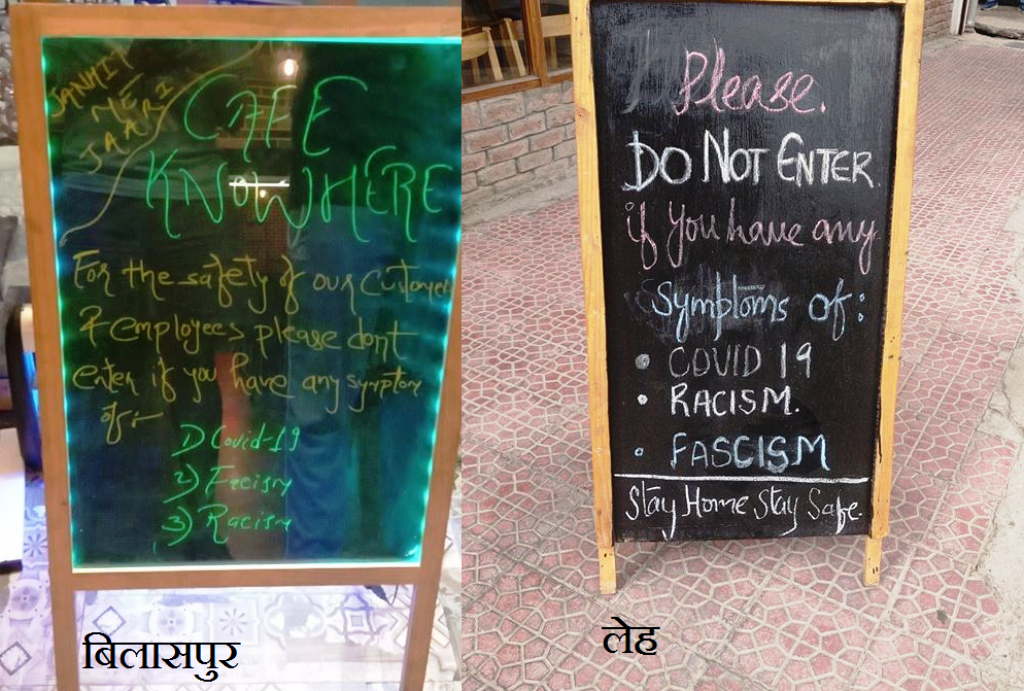 JANHIT
ME
JAARI
CAFE
KNOWHERE
For the safety of our Customers
& employees please dont
enter if you have any symptom
of:-
1) Covid-19
2) Facism
3) Racism
बिलासपुर
Please.
DO NOT ENTER.
if You have any
Symptoms of:
• COVID 19
• RACISM.
• FASCISM
Stay Home Stay Safe.
लेह